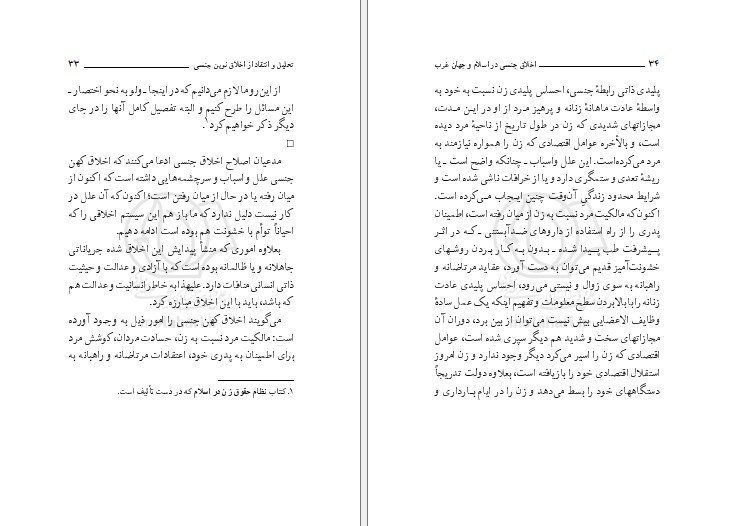 تحلیل و انتقاد از اخلاق نوین جنسی ۳۳
از این رو ما لازم می‌دانیم که در اینجا ـ ولو به نحو اختصار ـ
این مسائل را طرح کنیم و البته تفصیل کامل آنها را در جای
دیگر ذکر خواهیم کرد۱.
□
مدعیان اصلاح اخلاق جنسی ادعا می‌کنند که اخلاق کهن
جنسی علل و اسباب و سرچشمه‌هایی داشته است که اکنون از
میان رفته یا در حال از میان رفتن است؛ اکنون که آن علل در
کار نیست دلیل ندارد که ما باز هم این سیستم اخلاقی را که
احیاناً توأم با خشونت هم بوده است ادامه دهیم.
بعلاوه اموری که منشأ پیدایش این اخلاق شده جریاناتی
جاهلانه و یا ظالمانه بوده است که با آزادی و عدالت و حیثیت
ذاتی انسانی منافات دارد. علیهذا به خاطر انسانیت و عدالت هم
که باشد، باید با این اخلاق مبارزه کرد.
می‌گویند اخلاق کهن جنسی را امور ذیل به وجود آورده
است: مالکیت مرد نسبت به زن، حسادت مردان، کوشش مرد
برای اطمینان به پدری خود، اعتقادات مرتاضانه و راهبانه به
۱. کتاب نظام حقوق زن در اسلام که در دست تألیف است.
۳۴ اخلاق جنسی در اسلام و جهان غرب
پلیدی ذاتی رابطهٔ جنسی، احساس پلیدی زن نسبت به خود به
واسطهٔ عادت ماهانهٔ زنانه و پرهیز مرد از او در این مدت،
مجازاتهای شدیدی که زن در طول تاریخ از ناحیهٔ مرد دیده
است، و بالأخره عوامل اقتصادی که زن را همواره نیازمند به
مرد می‌کرده است. این علل و اسباب ـ چنانکه واضح است ـ یا
ریشهٔ تعدی و ستمگری دارد و یا از خرافات ناشی شده است و
شرایط محدود زندگی آن‌وقت چنین ایجاب می‌کرده است.
اکنون که مالکیت مرد نسبت به زن از میان رفته است، اطمینان
پدری را از راه استفاده از داروهای ضدآبستنی ـ که در اثر
پیشرفت طب پیدا شده ـ بدون به کار بردن روشهای
خشونت‌آمیز قدیم می‌توان به دست آورد، عقاید مرتاضانه و
راهبانه به سوی زوال و نیستی می‌رود، احساس پلیدی عادت
زنانه را با بالا بردن سطح معلومات و تفهیم اینکه یک عمل سادهٔ
وظایف الاعضایی بیش نیست می‌توان از بین برد، دوران آن
مجازاتهای سخت و شدید هم دیگر سپری شده است، عوامل
اقتصادی که زن را اسیر می‌کرد دیگر وجود ندارد و زن امروز
استقلال اقتصادی خود را بازیافته است، بعلاوه دولت تدریجاً
دستگاههای خود را بسط می‌دهد و زن را در ایام بارداری و